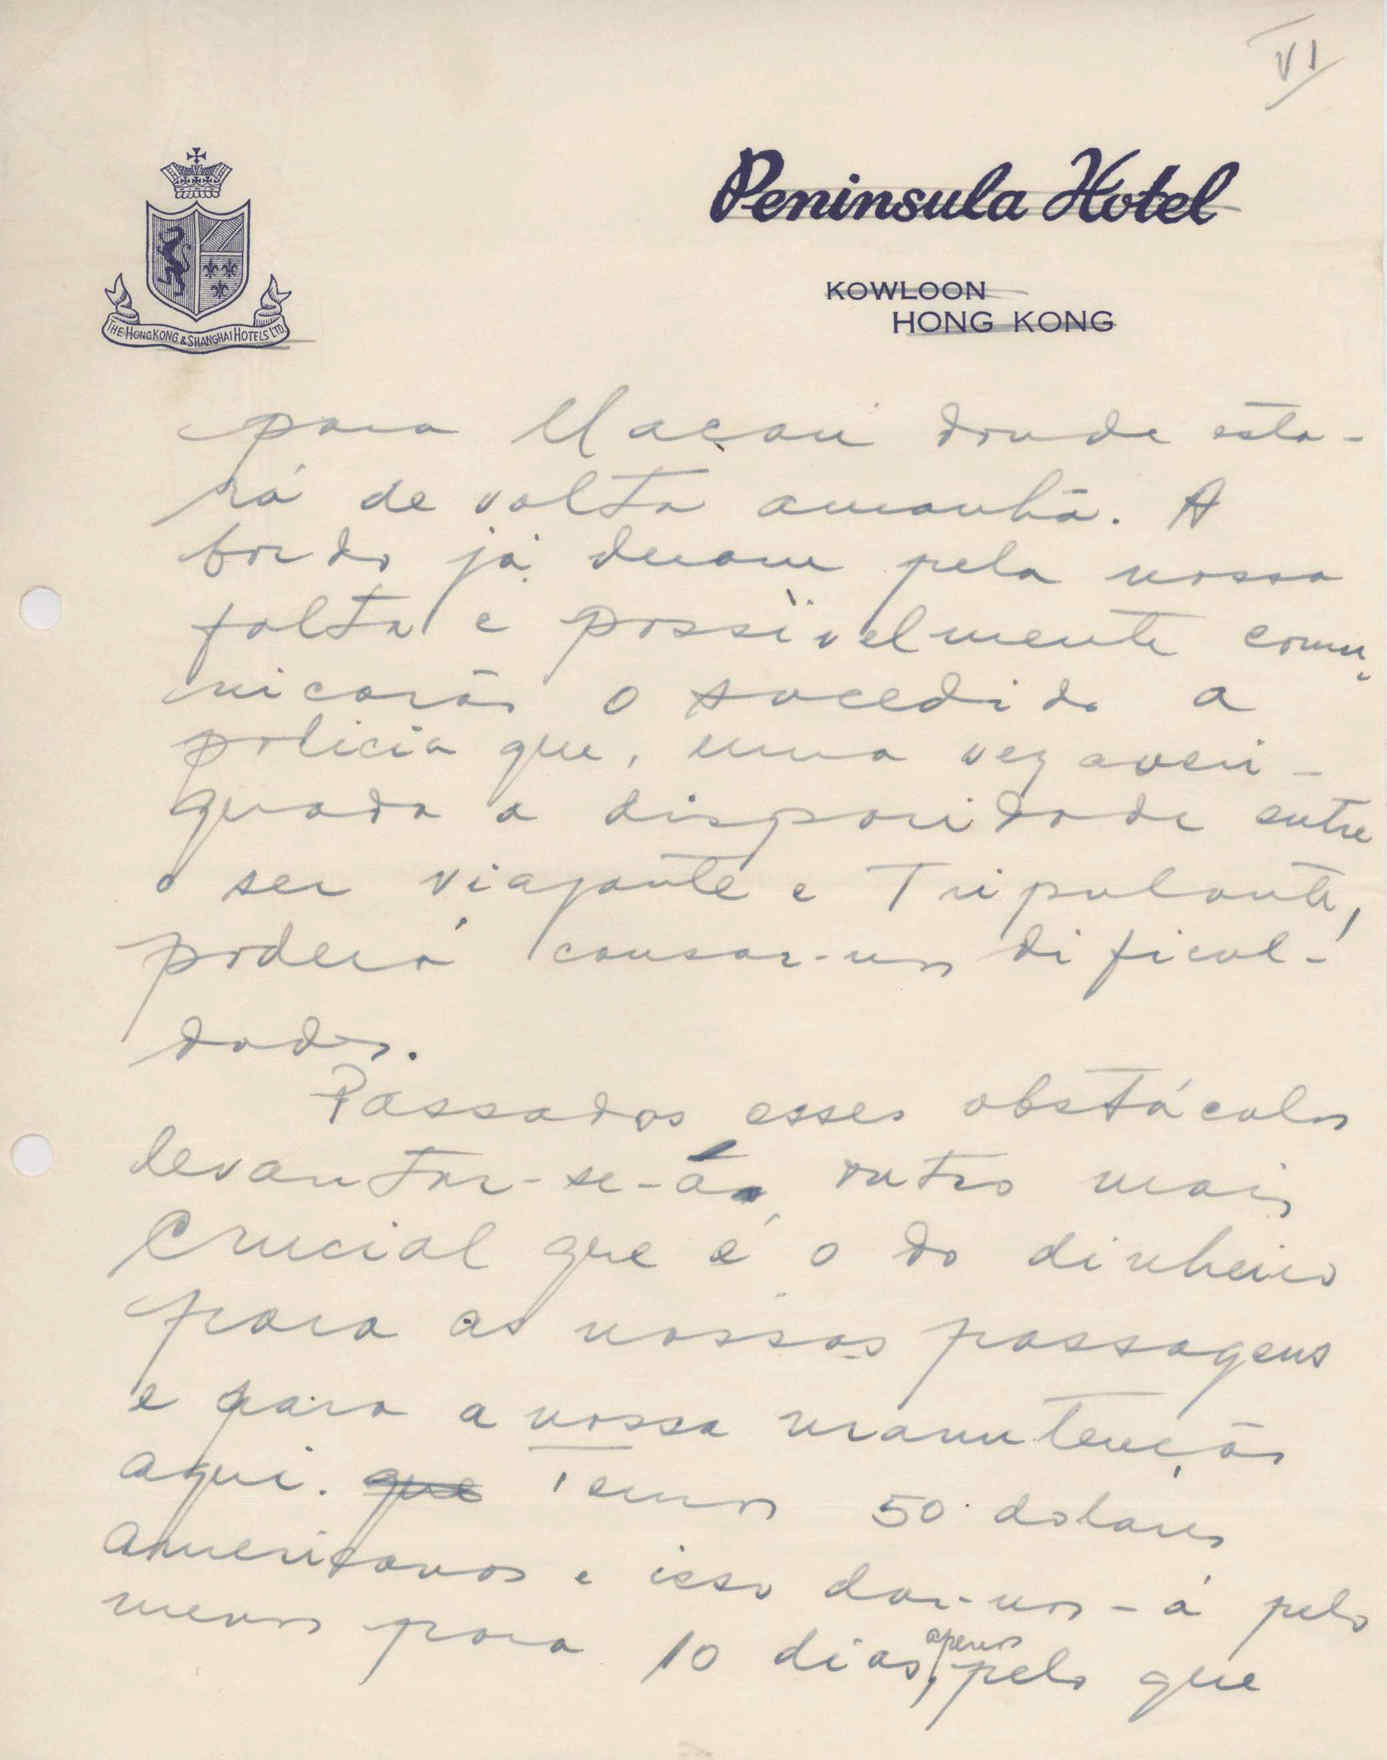 VI
Peninsula Hotel
KOWLOON
HONG KONG
THE HONGKONG & SHANGHAI HOTELS LTD.
para Macau donde esta-
rá de volta amanhã. A
bordo já deram pela nossa
falta e possivelmente comu-
nicarão o sucedido a
policia que, uma vez averi-
guada a disparidade entre
o ser viajante e Tripulante,
poderá causar-nos dificul-
dades.
Passados esses obstáculos
levantar-se-á outro mais
crucial que é o do dinheiro
para as nossas passagens
e para a nossa manutenção
aqui. que Temos 50 dolares
americanos e isso dar-nos-á pelo
menos para 10 dias, apenas pelo que